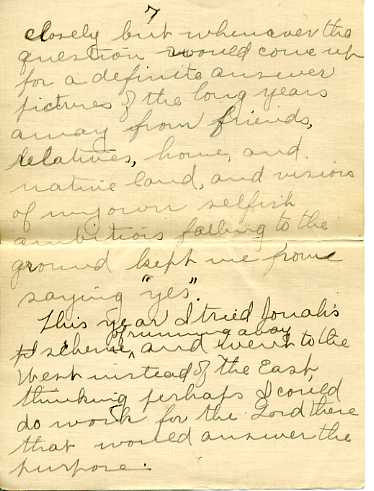 7
closely but whenever the
question would come up
for a definite answer
pictures of the long years
away from friends,
relatives, home, and
native land, and visions
of my own selfish
ambitions falling to the
ground kept me from
saying "yes".
This year I tried Jonah's
of running away
scheme, and went to the
West instead of the East,
thinking perhaps I could
do work for the Lord there
that would answer the
purpose.